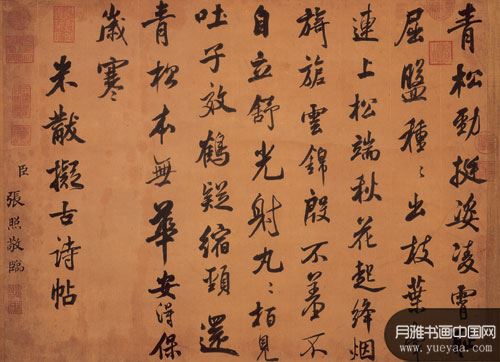 青松勁挺姿凌霄恥
屈盤種〻出枝葉
連上松端秋花起絳烟
旖旎雲錦殷不羞不
自立舒光射丸〻柏見
吐子效鶴疑縮頸還
青松本無華安得保
歲寒
米黻擬古詩帖
臣張照敬臨
月雅书画中国网
www.yueyaa.com